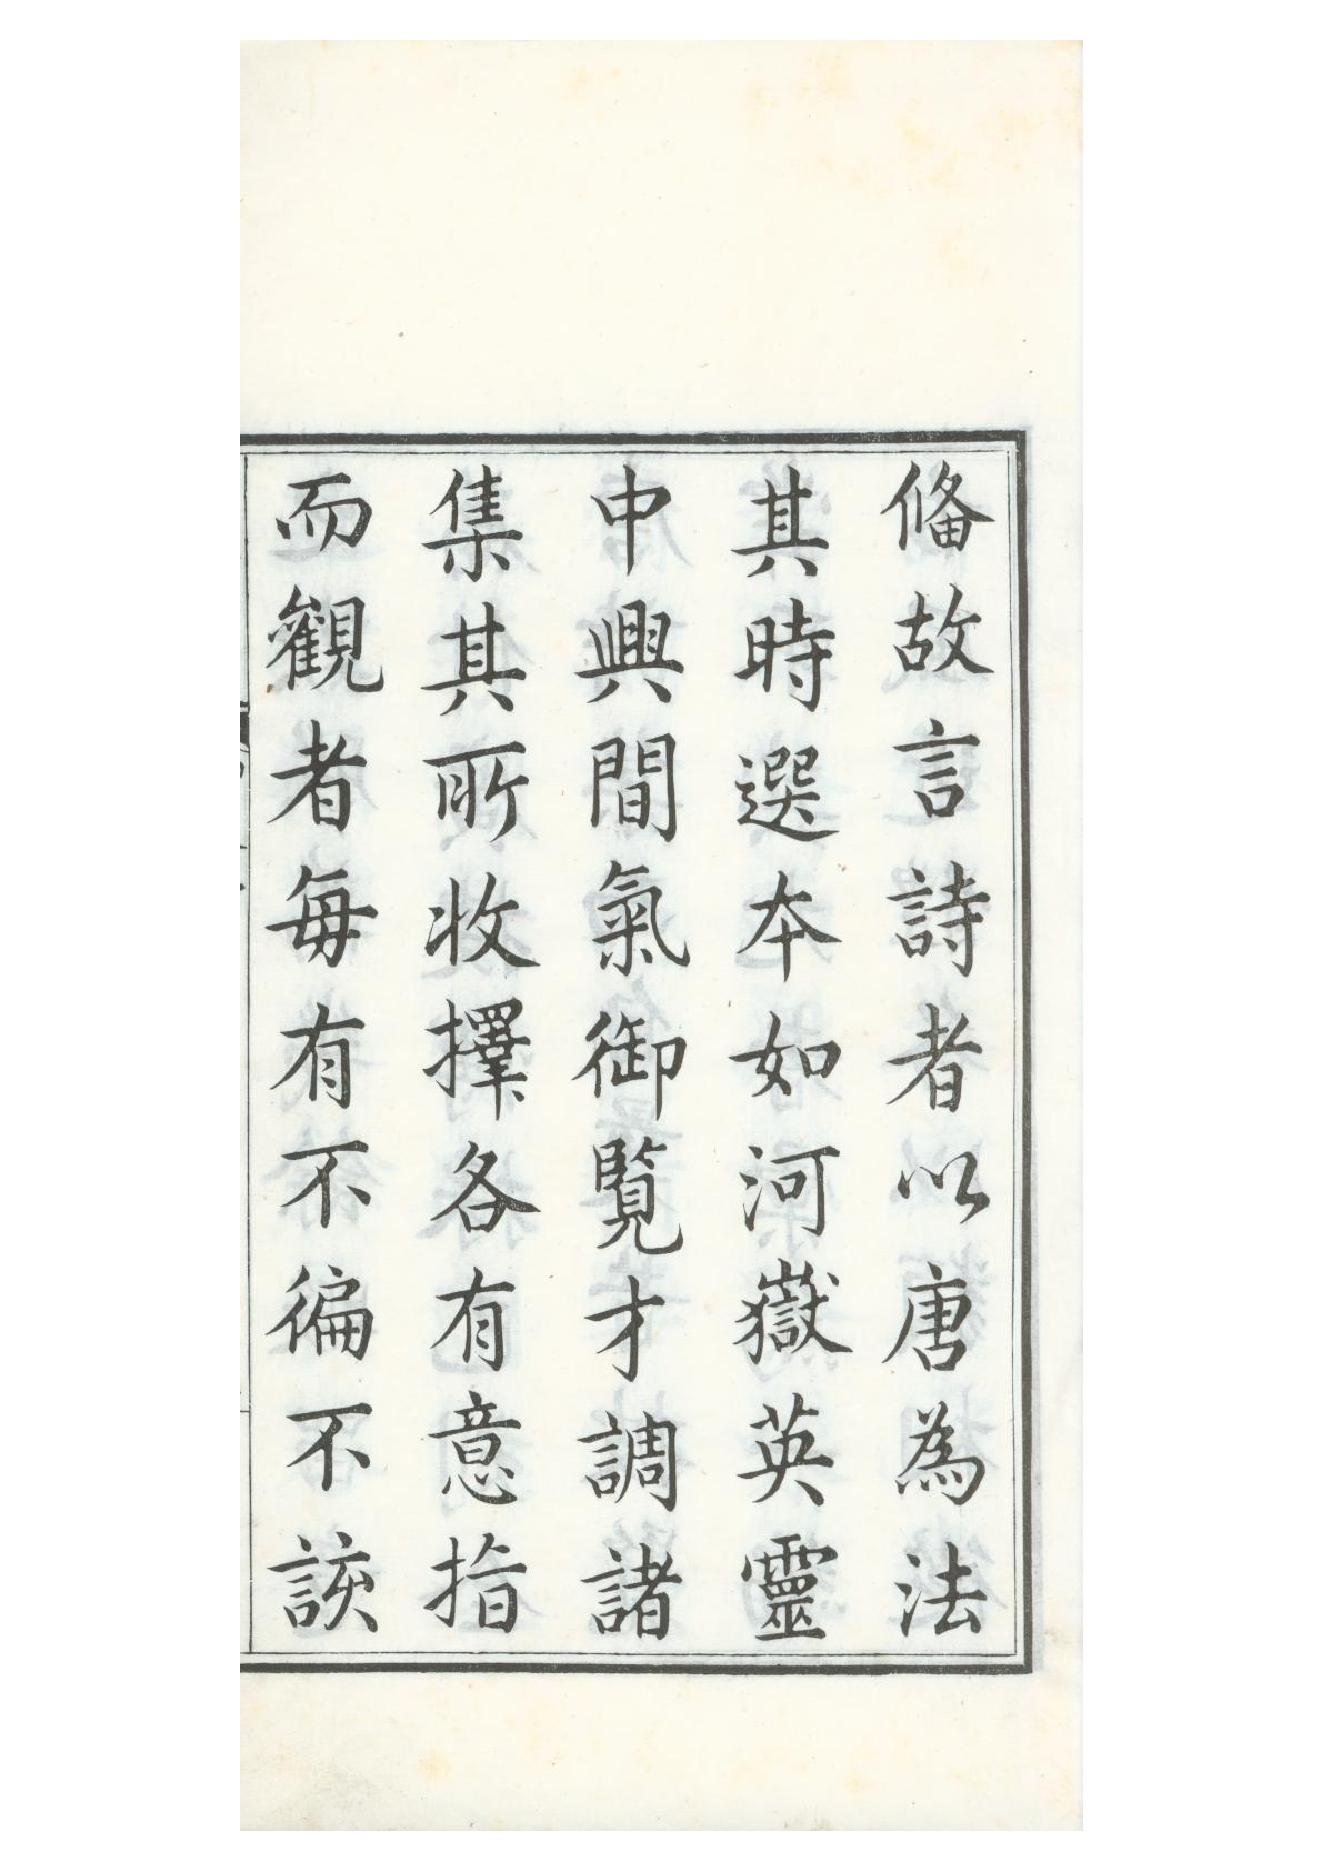 俻故言詩者以唐為法
其時選本如河嶽英靈
中興間氣御覽才調諸
集其所收擇各有意指
而觀者每有不徧不該